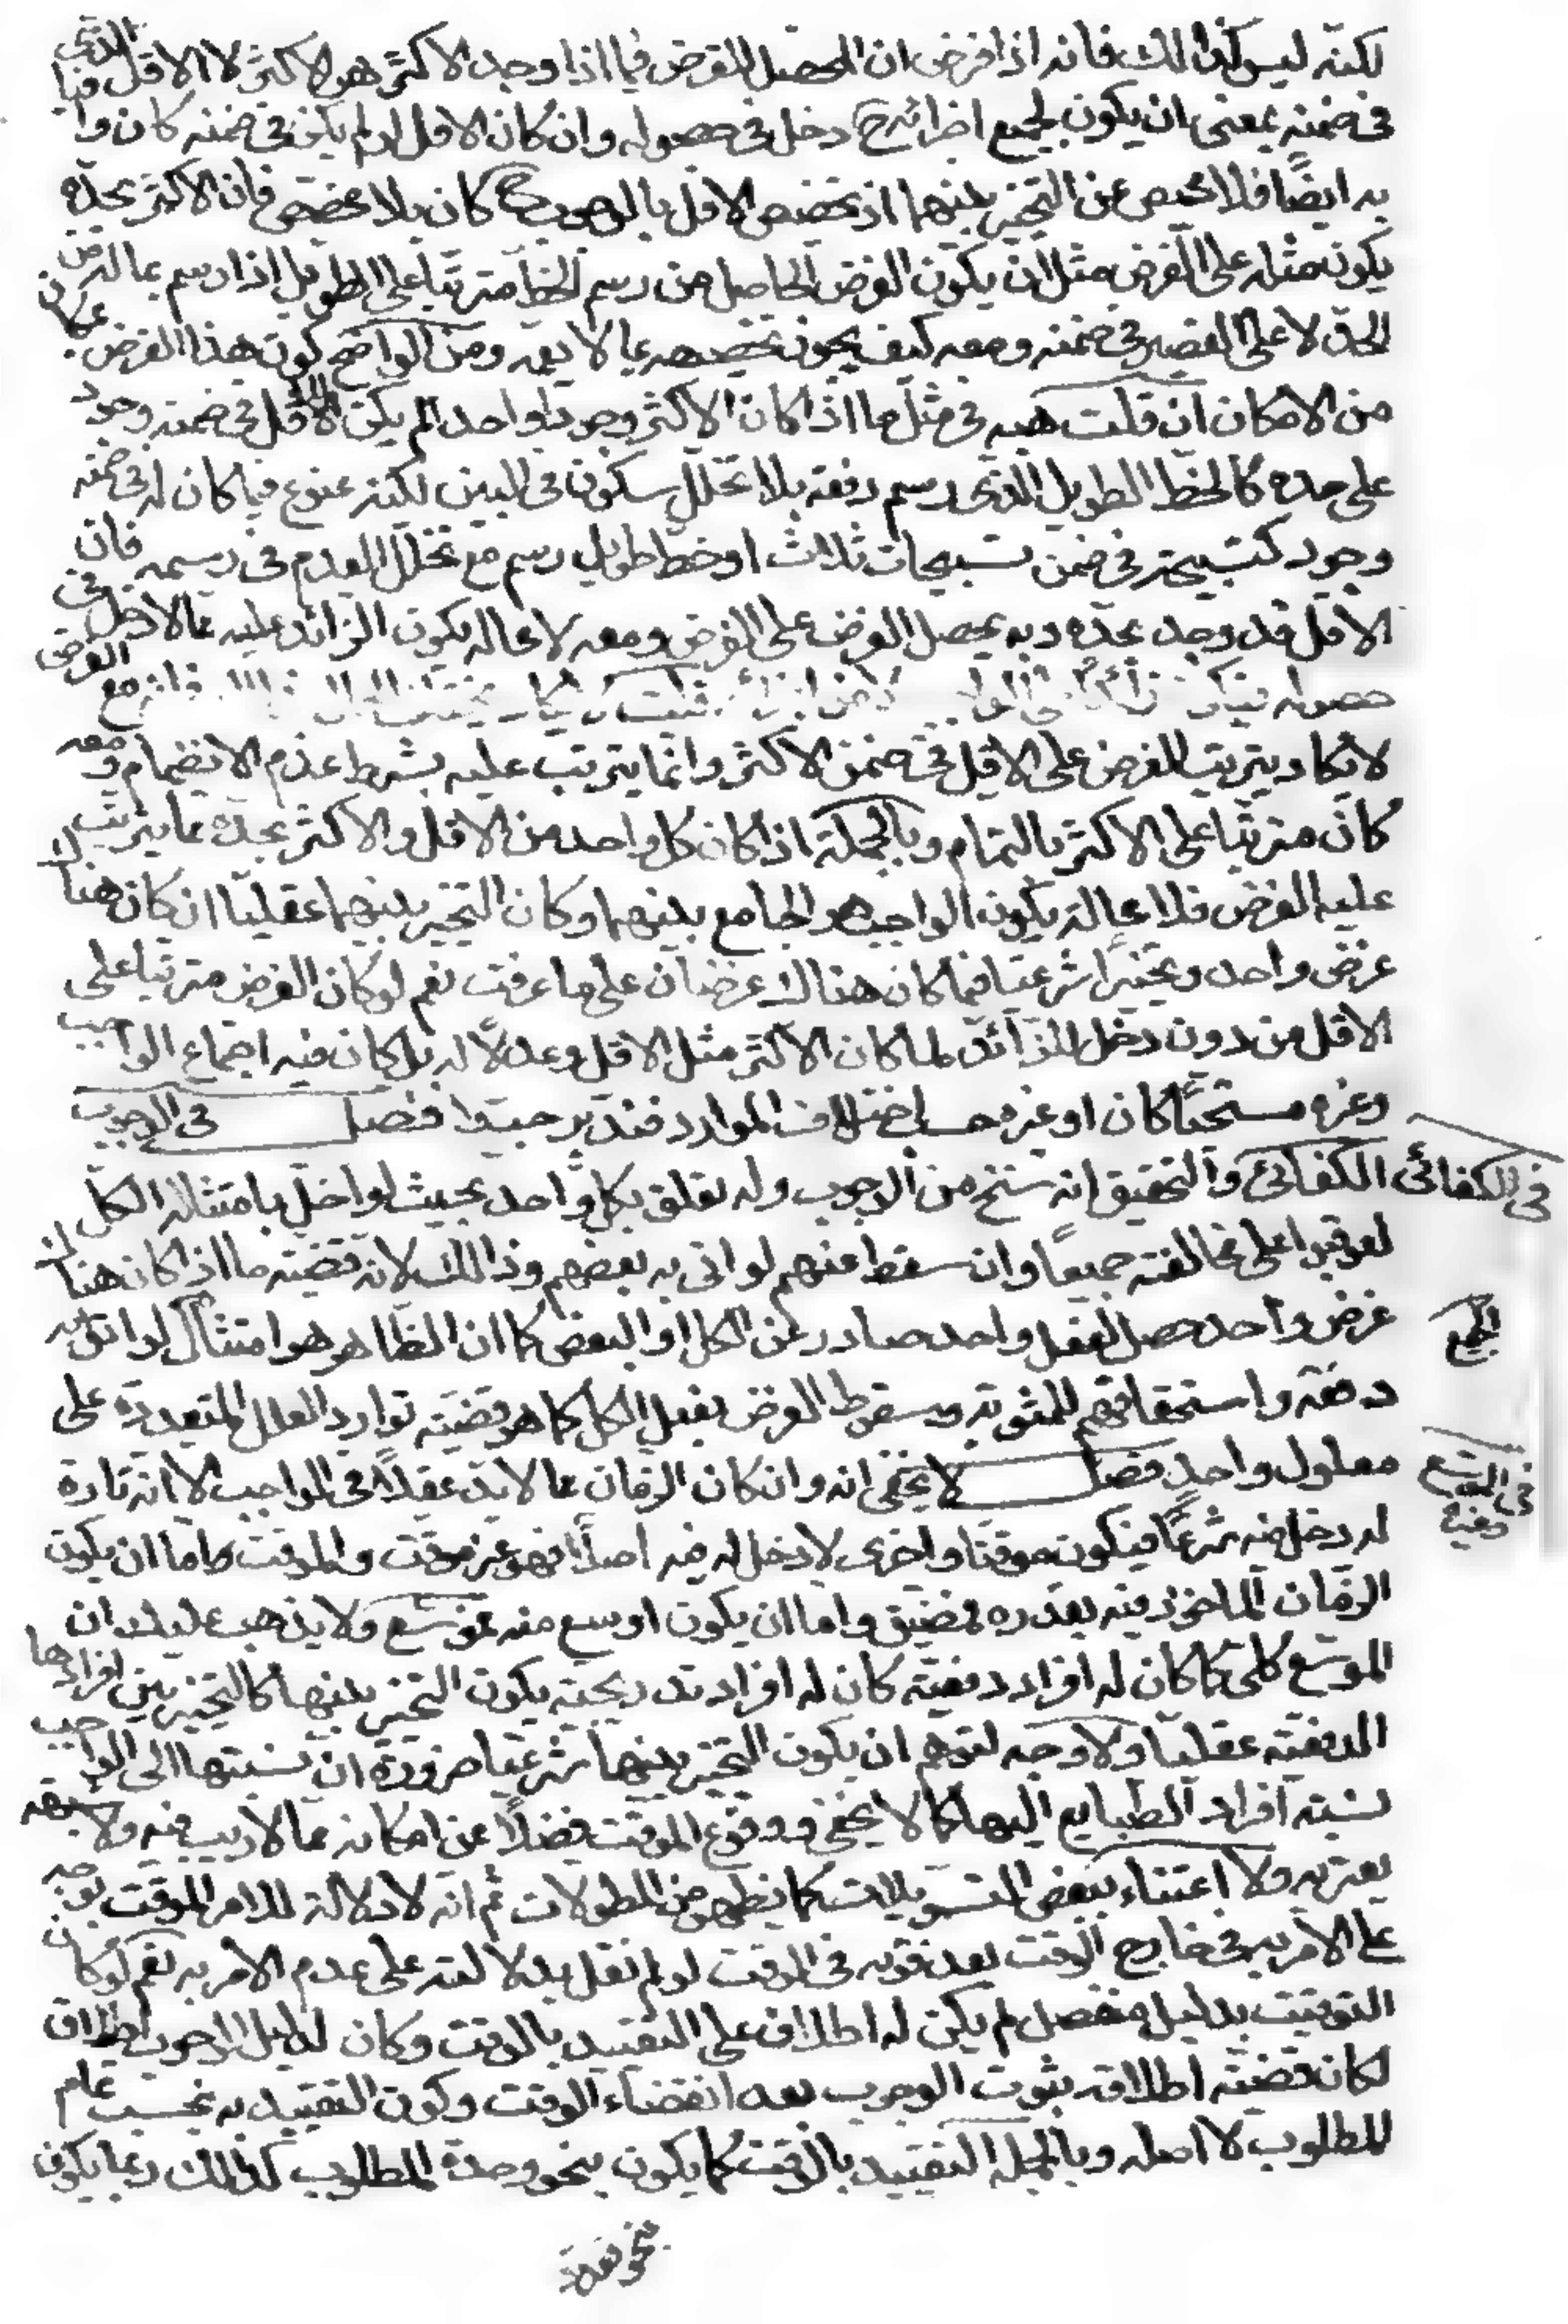 لكنه ليس كذلك فانه اذا فرض ان المحصل للغرض فيما اذا وجد الاكثر هو الاكثر لا الاقل الذي
في ضمنه بمعنى ان يكون لجميع اجزائه ح دخل في حصوله وان كان الاقل لو لم يكن في ضمنه كان وافيا
به ايضًا فلا محيص عن التخيير بينهما اذ تخصيص الاقل بالوجوب ح كان بلا مخصص فان الاكثر بحده
يكون مثله على الغرض مثل ان يكون الغرض الحاصل من رسم الخط مترتبا على الطويل اذا رسم بماله من
الحد لا على القصير في ضمنه ومعه كيف يجوز تخصيصه بما لا يعمه ومن الواضح كون هذا الفرض بمكان
من الامكان ان قلت هبه في مثل ما اذا كان الاكثر وجود واحد لم يكن للاقل في ضمنه وجود
على حده كالخط الطويل الذي رسم دفعة بلا تخلل سكون في البين لكنه ممنوع فيما كان له في ضمنه
وجود كتسبيحة في ضمن تسبيحات ثلاث او خط طويل رسم مع تخلل العدم في رسمه فان
الاقل قد وجد بحده وبه يحصل الغرض على الفرض ومعه لا محالة يكون الزائد عليه مما لا دخل في
حصوله فيكون زائدا على الواجب
لا يكاد يترتب الغرض على الاقل في ضمن الاكثر وانما يترتب عليه بشرط عدم الانضمام ومعه
كان مترتبا على الاكثر بالتمام وبالجملة اذا كان كل واحد من الاقل والاكثر بحده مما يترتب
عليه الغرض فلا محالة يكون الواجب هو الجامع بينهما وكان التخيير بينهما عقليا ان كان هناك
غرض واحد وتخييرا شرعيا فيما كان هناك غرضان على ما عرفت نعم لو كان الغرض مترتبا على
الاقل من دون دخل للزائد لما كان الاكثر مثل الاقل وعدلًا له بل كان فيه اجتماع الواجب
وغيره مستحبًا كان او غيره حسب اختلاف الموارد فتدبر جيدا فصل في الوجوب
في الكفائي
الكفائي والتحقيق انه سنخ من الوجوب وله تعلق بكل واحد بحيث لو اخل بامتثاله الكل
لعوقبوا على مخالفته جميعًا وان سقط عنهم لو اتى به بعضهم وذلك لانه قضية ما اذا كان هناك
غرض واحد حصل بفعل واحد صادر عن الكل او البعض كما ان الظاهر هو امتثال لو اتى به
الجميع
دفعة واستحقاقهم للمثوبة وسقوط الغرض بفعل الكل كما هو قضية توارد العلل المتعددة على
معلول واحد فصل لا يخفى انه وان كان الزمان مما لا بد عقلًا في الواجب الا انه تارة
في الموسع وغيره
له دخل فيه شرعًا فيكون موقتا واخرى لا دخل له فيه اصلًا فهو غير موقت والموقت اما ان يكون
الزمان الماخوذ فيه بقدره فمضيق واما ان يكون اوسع منه فموسع ولا يذهب عليك ان
الموسع كلي كما كان له افراد دفعية كان له افراد تدريجية يكون التخيير بينها كالتخيير بين افرادها
الدفعية عقليا ولا وجه لتوهم ان يكون التخيير بينها شرعيا ضرورة ان نسبتها الى الواجب
نسبة افراد الطبايع اليها كما لا يخفى ووقوع الموقت فضلًا عن امكانه مما لا ريب فيه ولا شبهة
يعتريه ولا اعتناء ببعض التسويلات كما يظهر من المطولات ثم انه لا دلالة للامر بالموقت بوجه
على الامر به في خارج الوقت بعد فوته في الوقت لو لم نقل بدلالته على عدم الامر به نعم لو كان
التوقيت بدليل منفصل لم يكن له اطلاق على التقييد بالوقت وكان لدليل الوجوب اطلاق
لكان قضية اطلاقه ثبوت الوجوب بعد انقضاء الوقت وكون التقييد به بحسب تمام
المطلوب لا اصله وبالجملة التقييد بالوقت كما يكون بنحو وحدة المطلوب كذلك ربما يكون
بنحو تعدد